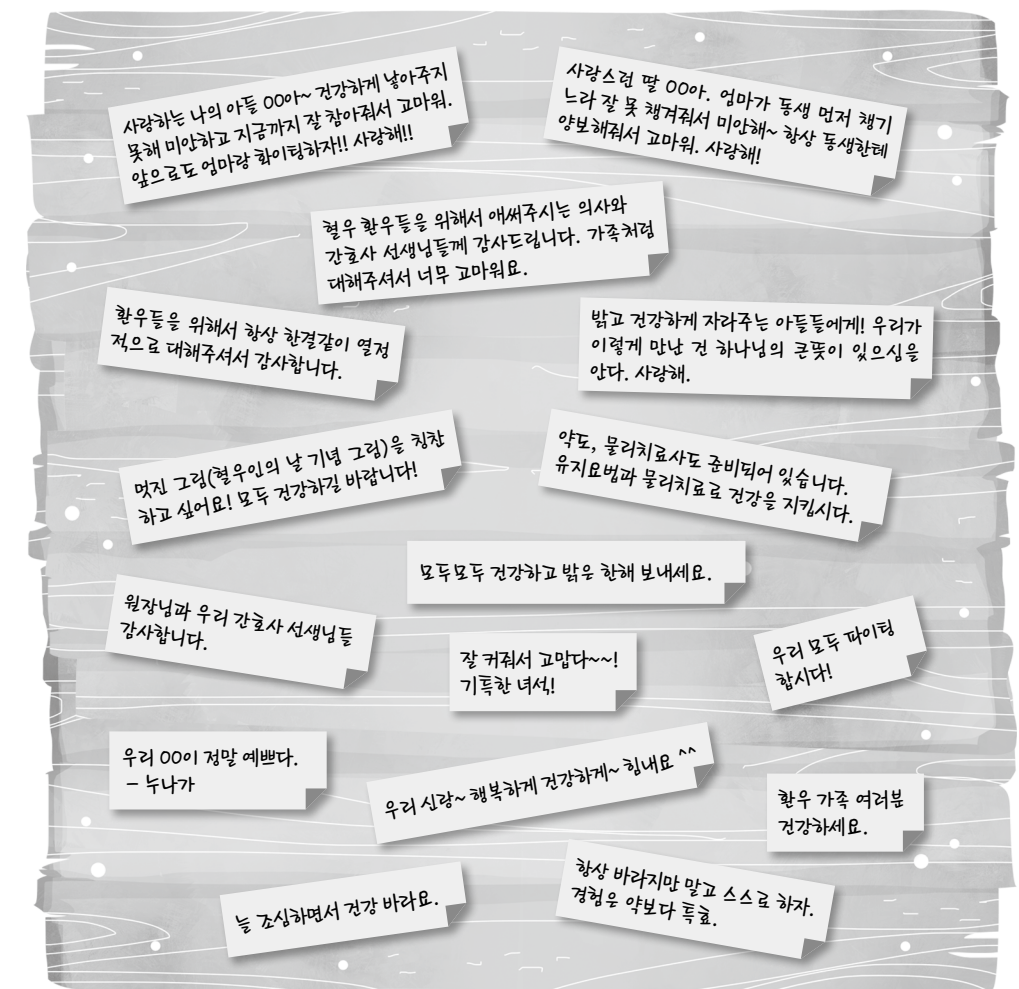 사랑하는 나의 아들 OO아~ 건강하게 낳아주지
못해 미안하고 지금까지 잘 참아줘서 고마워.
앞으로도 엄마랑 화이팅하자!! 사랑해!!
사랑스런 딸 OO아. 엄마가 동생 먼저 챙기
느라 잘 못 챙겨줘서 미안해~ 항상 동생한테
양보해줘서 고마워. 사랑해!
혈우 환우들을 위해서 애써주시는 의사와
간호사 선생님들께 감사드립니다. 가족처럼
대해주셔서 너무 고마워요.
환우들을 위해서 항상 한결같이 열정
적으로 대해주셔서 감사합니다.
밝고 건강하게 자라주는 아들들에게! 우리가
이렇게 만난 건 하나님의 큰뜻이 있으심을
안다. 사랑해.
멋진 그림(혈우인의 날 기념 그림)을 칭찬
하고 싶어요! 모두 건강하길 바랍니다!
약도, 물리치료사도 준비되어 있습니다.
유지요법과 물리치료로 건강을 지킵시다.
모두모두 건강하고 밝은 한해 보내세요.
원장님과 우리 간호사 선생님들
감사합니다.
잘 커줘서 고맙다~~!
기특한 녀석!
우리 모두 파이팅
합시다!
우리 OO이 정말 예쁘다.
- 누나가
우리 신랑~ 행복하게 건강하게~ 힘내요 ^^
환우 가족 여러분
건강하세요.
늘 조심하면서 건강 바라요.
항상 바라지만 말고 스스로 하자.
경험은 약보다 특효.